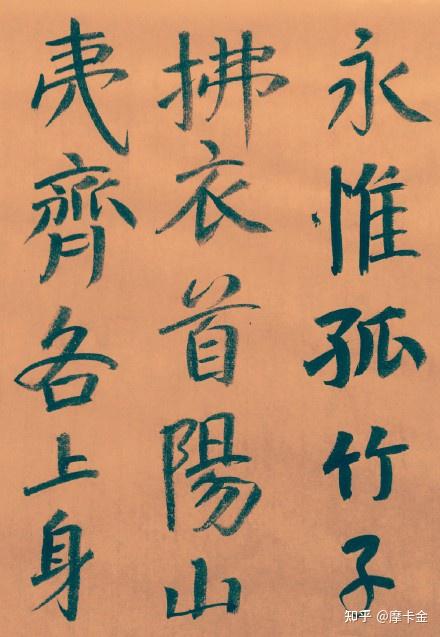 永惟孤竹子
拂衣首陽山
夷齊各上身
知乎 @摩卡金